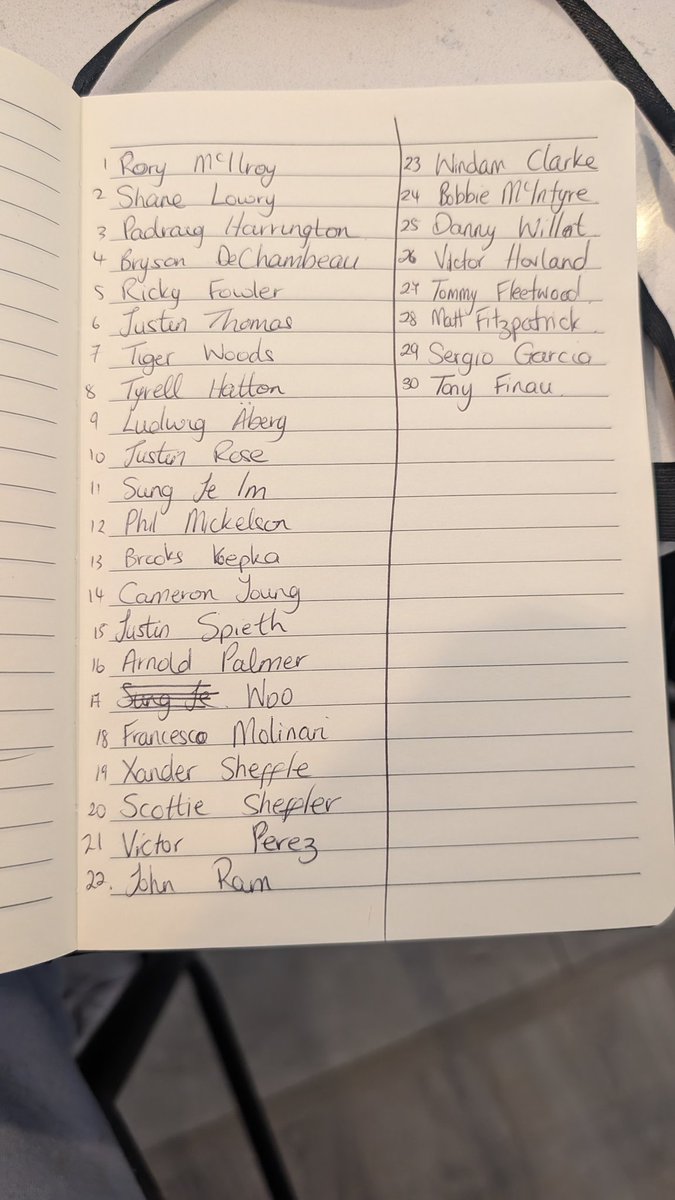 1 Rory McIlroy
2 Shane Lowry
3 Padraig Harrington
4 Bryson DeChambeau
5 Ricky Fowler
6 Justin Thomas
7 Tiger Woods
8 Tyrell Hatton
9 Ludwig Äberg
10 Justin Rose
11 Sung Je Im
12 Phil Mickelson
13 Brooks Koepka
14 Cameron Young
15 Justin Spieth
16 Arnold Palmer
17 Sung Je Woo
18 Francesco Molinari
19 Xander Sheffle
20 Scottie Sheffler
21 Victor Perez
22. John Ram
23 Windam Clarke
24 Bobbie McIntyre
25 Danny Willet
26 Victor Hovland
27 Tommy Fleetwood
28 Matt Fitzpatrick
29 Sergio Garcia
30 Tony Finau